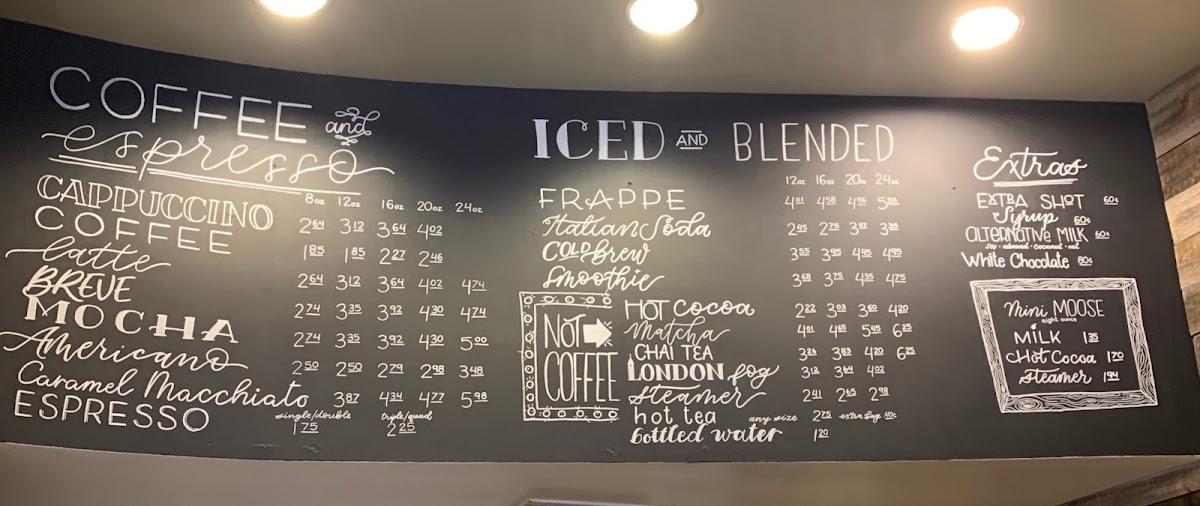 COFFEE and
espresso
8oz 12oz 16oz 20oz 24oz
CAPPUCCINO 2.64 3.12 3.64 4.02
COFFEE 1.85 1.85 2.27 2.46
latte 2.64 3.12 3.64 4.02 4.74
BREVE 2.74 3.35 3.92 4.30 4.74
MOCHA 2.74 3.35 3.92 4.30 5.00
Americano 2.50 2.50 2.79 2.98 3.48
Caramel Macchiato 3.87 4.34 4.77 5.98
single/double triple/quad
ESPRESSO 1.75 2.25
ICED AND BLENDED
12oz 16oz 20oz 24oz
FRAPPE 4.01 4.58 4.96
Italian Soda 2.45 2.75
COLD brew 3.55 3.95 4.45 4.95
Smoothie 3.75 4.35 4.75
NOT
COFFEE
HOT Cocoa 2.22 3.03 3.60 4.20
Matcha 4.01 4.65 5.45 6.25
CHAI TEA 3.83 4.20 6.25
LONDON fog 3.12 3.64 4.02
Steamer 2.41 2.65 2.98
hot tea any size 2.75 extra bag 40¢
bottled water 1.20
Extras
EXTRA SHOT 60¢
Syrup 60¢
ALTERNATIVE MILK 60¢
soy - almond - coconut - oat
White Chocolate 80¢
Mini MOOSE
eight ounce
MILK 1.35
Hot Cocoa 1.70
Steamer 1.94